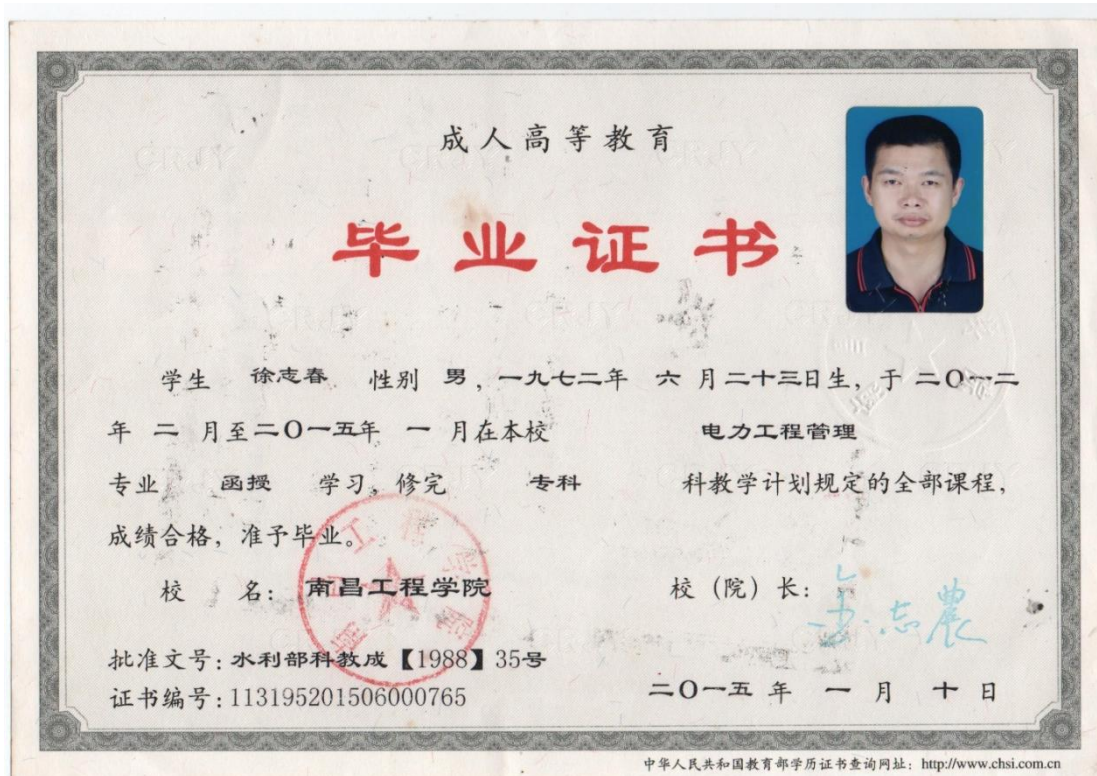 成人高等教育
毕业证书
学生 徐志春 性别 男，一九七二年 六 月二十三日生，于 二〇一二
年 二 月至二〇一五年 一 月在本校 电力工程管理
专业 函授 学习，修完 专科 科教学计划规定的全部课程，
成绩合格，准予毕业。
校 名：南昌工程学院
校（院）长：金志農
批准文号：水利部科教成【1988】35号
证书编号：113195201506000765
二〇一五 年 一 月 十 日
中华人民共和国教育部学历证书查询网址：http://www.chsi.com.cn